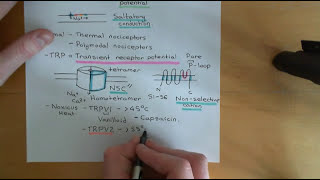 potential
Na+
Saltatory
conduction
- Thermal nociceptors
- Polymodal nociceptors
- TRP = Transient receptor potential
Pore
P-loop
tetramer
NSC"
Na+
Ca2+
Homotetramer
S1-S6
Non-selective
cation
- Noxious
Heat
- TRPV1 - >45°C
Vanilloid - Capsaicin
- TRPV2 - >5